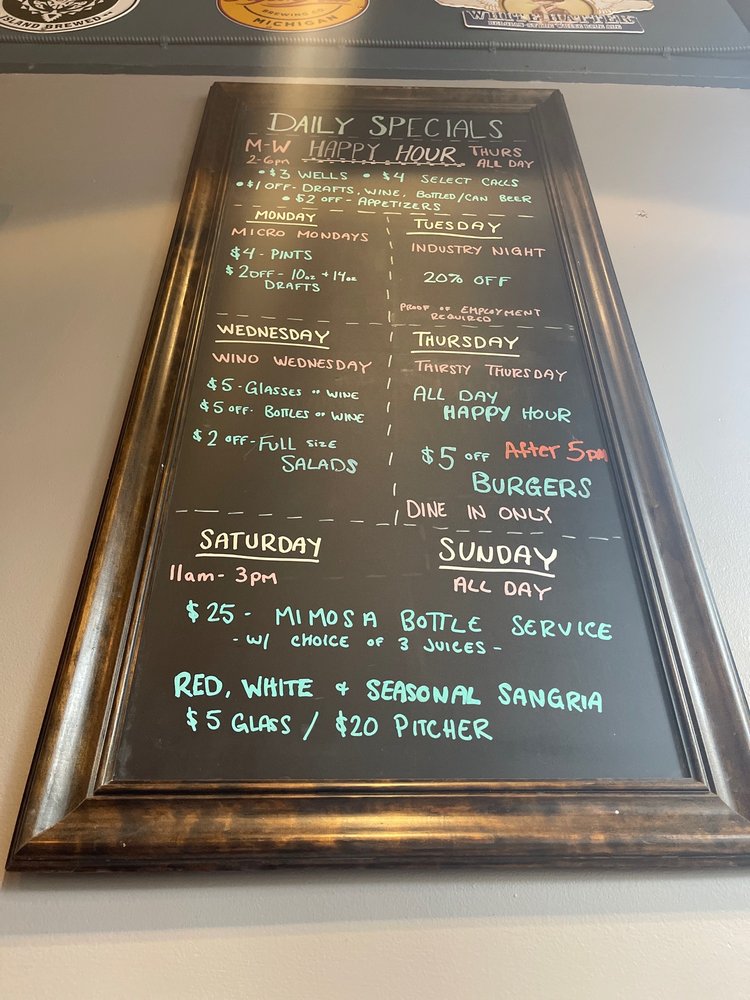 ISLAND BREWED
BREWING CO
MICHIGAN
WHITE HATTER
DAILY SPECIALS
M-W HAPPY HOUR THURS
2-6pm ALL DAY
• $3 WELLS • $4 SELECT CALLS
• $1 OFF - DRAFTS, WINE, BOTTLED/CAN BEER
• $2 OFF - APPETIZERS
MONDAY
MICRO MONDAYS
$4 - PINTS
$2 OFF - 10oz + 14oz
DRAFTS
TUESDAY
INDUSTRY NIGHT
20% OFF
PROOF OF EMPLOYMENT
REQUIRED
WEDNESDAY
WINO WEDNESDAY
$5 - GLASSES OF WINE
$5 OFF - BOTTLES OF WINE
$2 OFF - FULL SIZE
SALADS
THURSDAY
THIRSTY THURSDAY
ALL DAY
HAPPY HOUR
$5 OFF After 5pm
BURGERS
DINE IN ONLY
SATURDAY
11am - 3pm
SUNDAY
ALL DAY
$25 - MIMOSA BOTTLE SERVICE
- W/ CHOICE OF 3 JUICES -
RED, WHITE + SEASONAL SANGRIA
$5 GLASS / $20 PITCHER